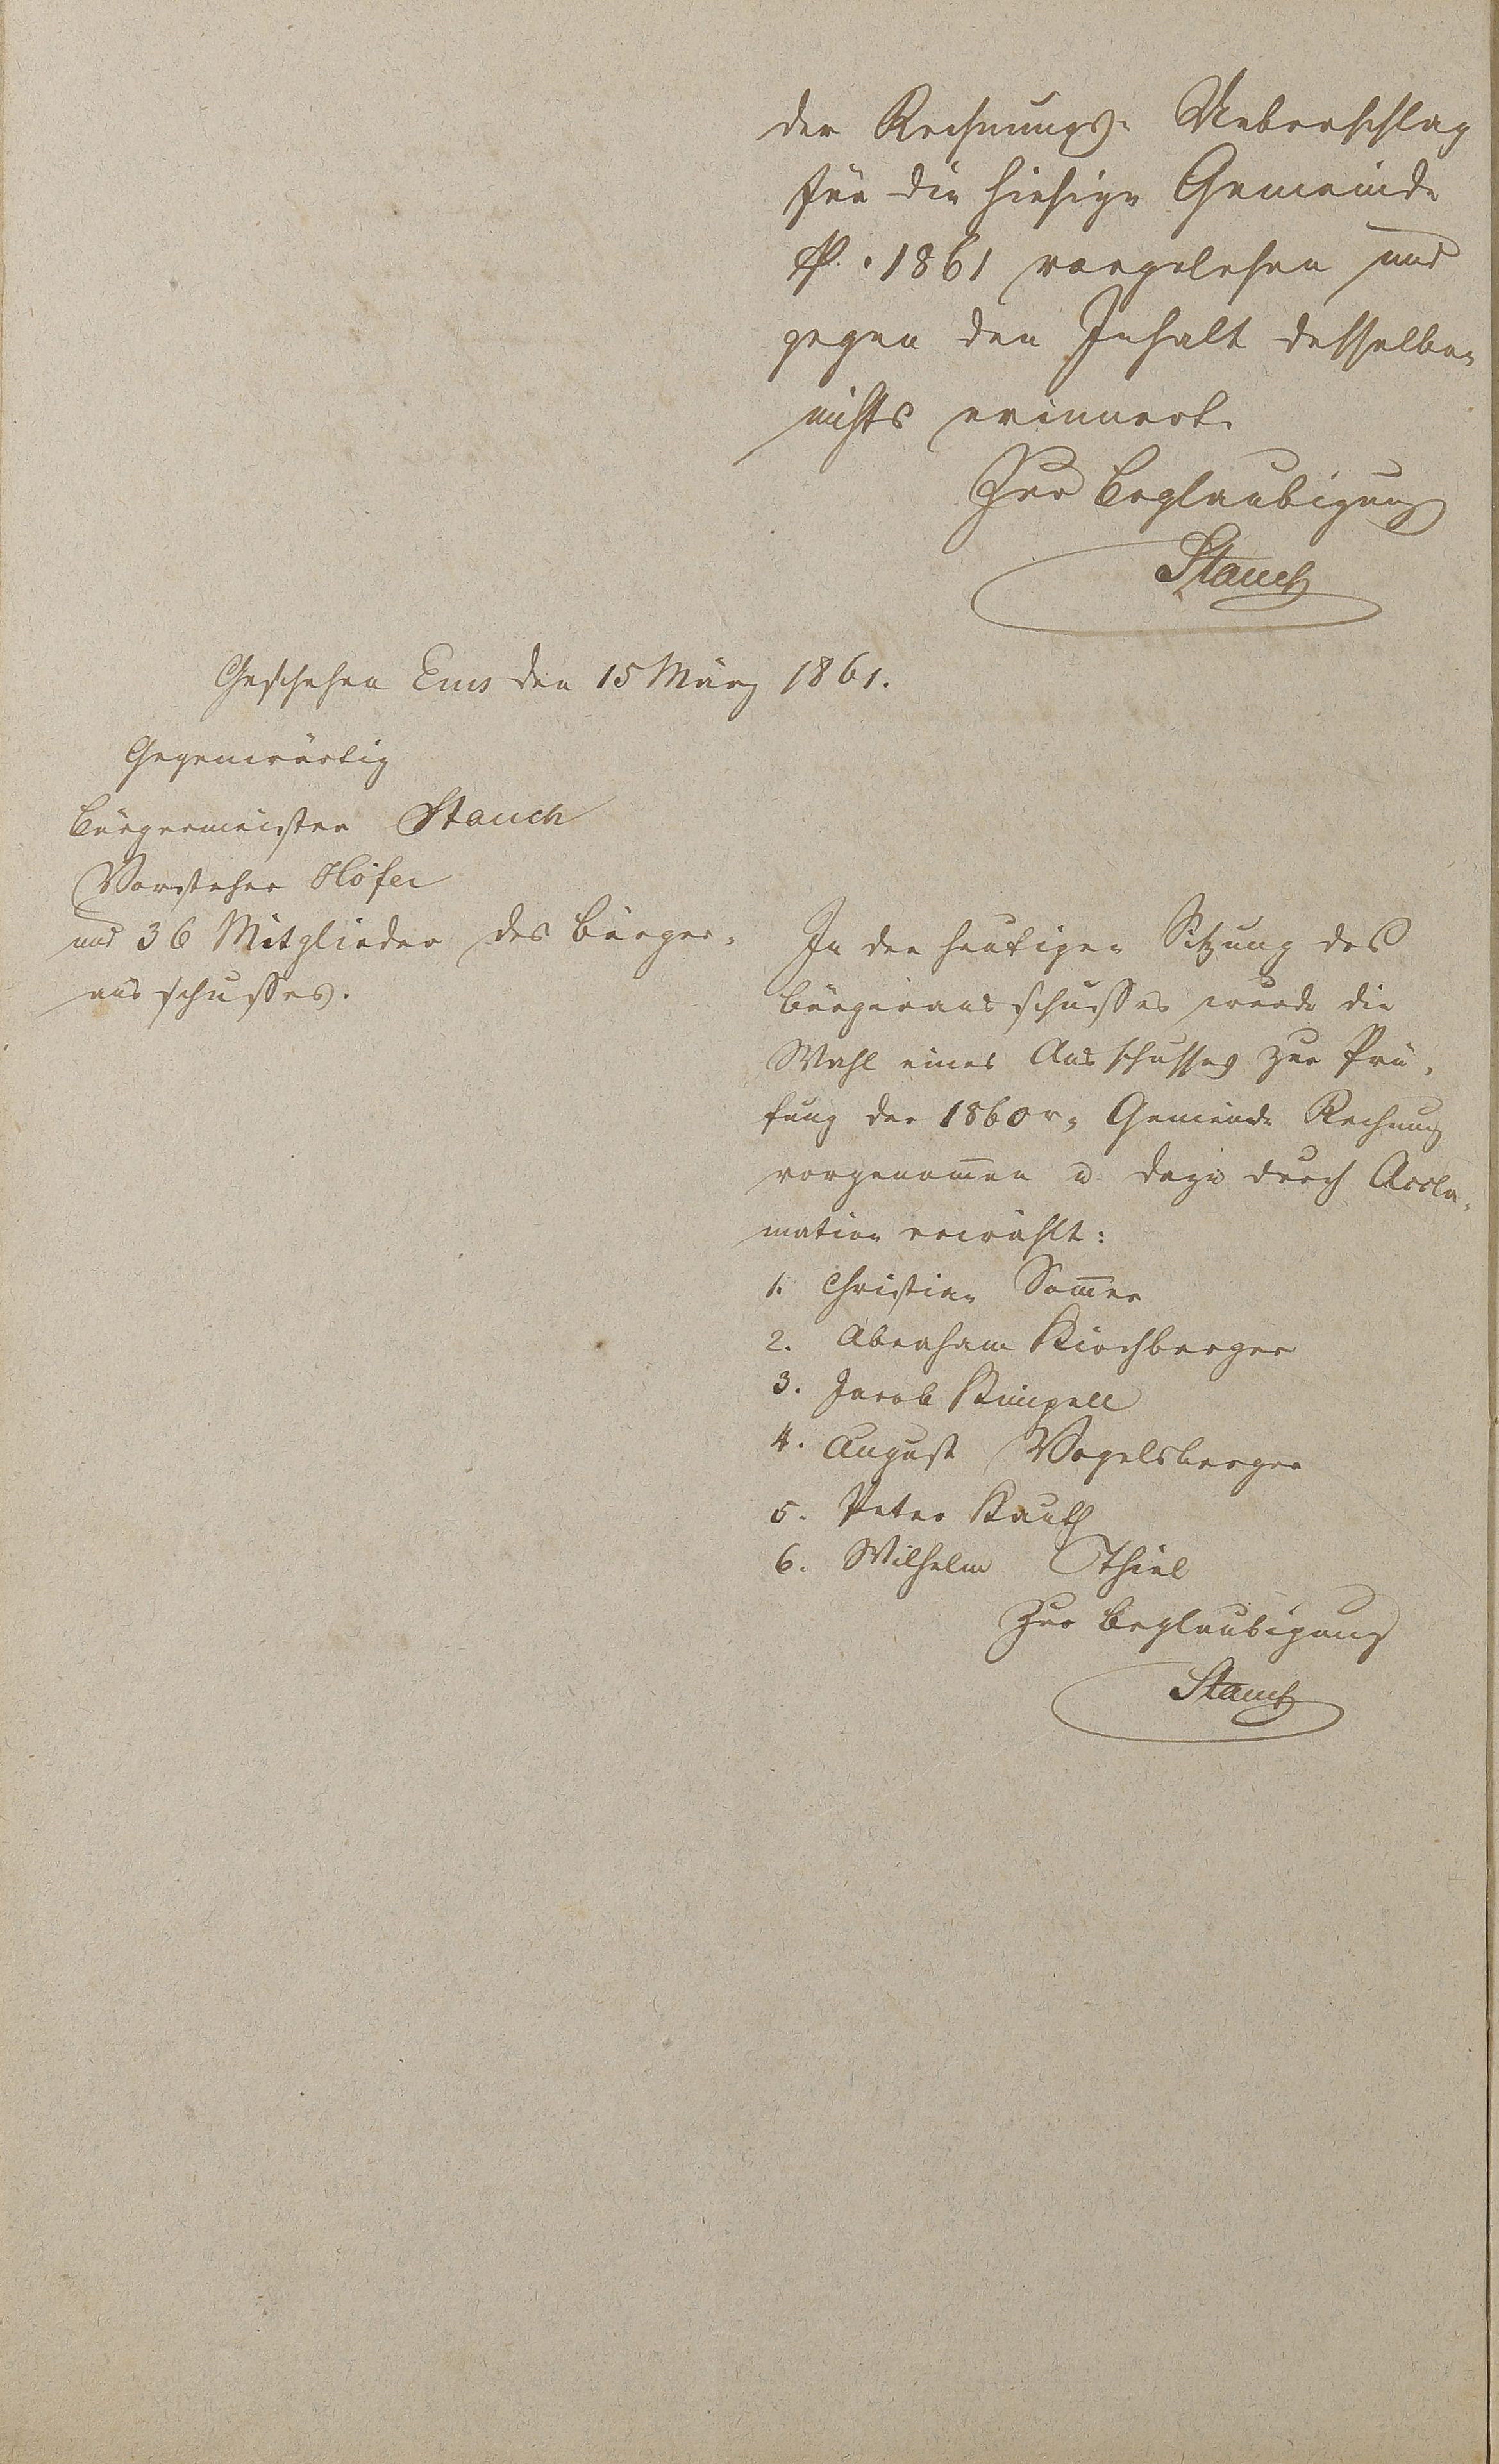 der Rechnungs-Ueberschlag
für die hiesige Gemeinde
p. 1861 vorgelesen und
gegen den Inhalt desselben
nichts erinnert.
Zur Beglaubigung
Stauch
Geschehen Ems den 15 März 1861.
Gegenwärtig
Bürgermeister Stauch
Vorsteher Höfer
und 36 Mitglieder des Bürger-
ausschusses.
In der heutigen Sitzung des
Bürgerausschusses wurde die
Wahl eines Ausschusses zur Prü-
fung der 1860r. Gemeinde Rechnung
vorgenom̅en u. dazu durch Accla-
mation erwählt:
1. Christian Som̅er
2. Abraham Kirchberger
3. Jacob Kimpell
4. August Vogelsberger
5. Peter Kauth
6. Wilhelm Thiel
Zur Beglaubigung
Stauch